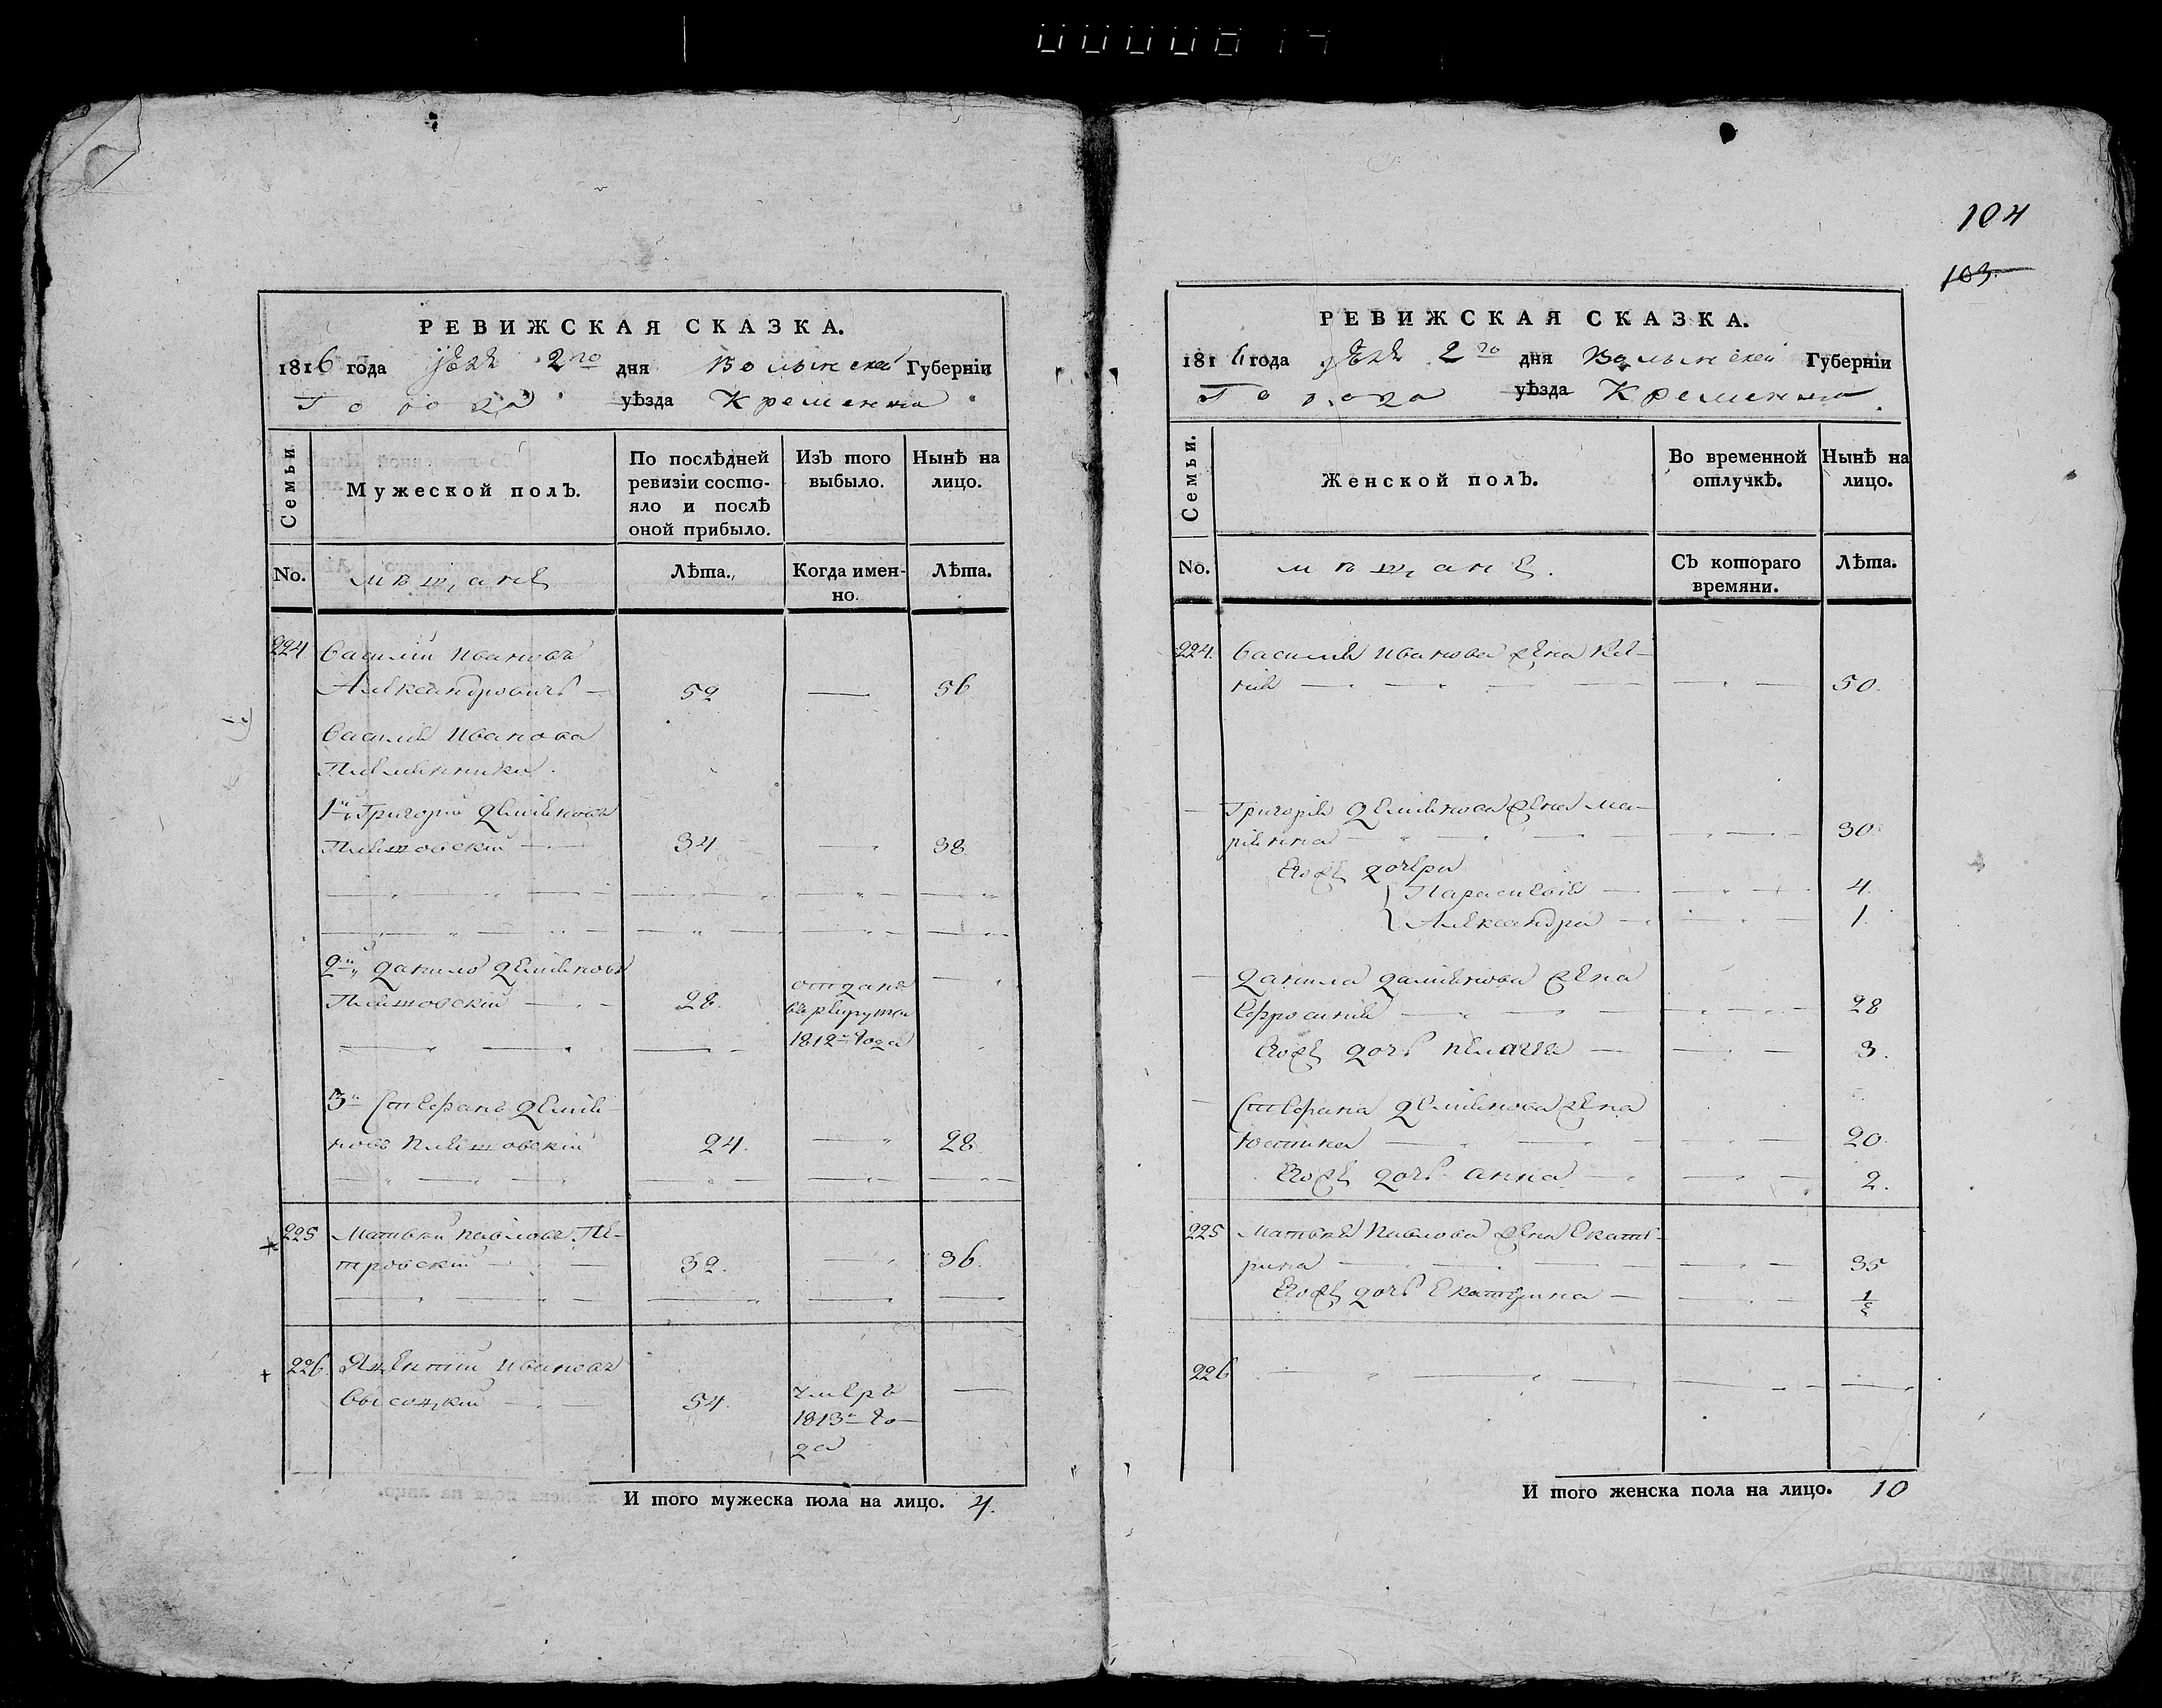 104
103.
РЕВИЖСКАЯ СКАЗКА.
1816 года 2го дня Волынской Губернїи
Города уѣзда Кременца
Семьи.
Мужеской полъ.
По послѣдней ревизїи состо-
яло и послѣ оной прибыло.
Изъ того выбыло.
Нынѣ на лицо.
No.
мѣщане
Лѣта.
Когда имен-
но.
Лѣта.
224. Василій Ивановъ
Александровичъ — 52 — 56
Василія Иванова
Племянники.
1й Григорій Демяновъ
34 — 38
2й Данило Демяновъ
28. отданъ
въ рекруты
1812го года
3й Стефанъ Демя-
новъ 24. — 28
225 Матвѣй Павловъ Пе-
тровский — 32. — 36.
226. Ивановъ
Высоцкій — 54. умеръ —
1813го го-
да
И того мужеска пола на лицо. 4.
РЕВИЖСКАЯ СКАЗКА.
1816 года 2го дня Волынской Губернїи
Города уѣзда Кременца.
Семьи.
Женской полъ.
Во временной отлучкѣ.
Нынѣ на лицо.
No.
мѣщане.
Съ котораго времяни.
Лѣта.
224. Василія Иванова жена Ксе-
нія — 50.
Григорія Демянова жена Ма-
ріянна — 30.
Егоже дочери
Параскевія — 4.
Александра — 1.
Данила Демянова жена
Ефросинія — 28
Егоже дочь Пелагея — 3.
Стефана Демянова жена
Юстина — 20.
Егоже дочь Анна — 2.
225 Матвѣя Павлова жена Екате-
рина — 35
Егоже дочь Екатерина —
226
И того женска пола на лицо. 10